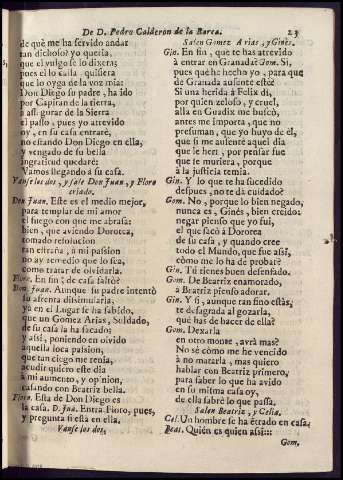 De D. Pedro Calderon de la Barca.
23
de què me ha servido andar
tan dichoso? yo queria,
que el vulgo se lo dixera;
pues el lo calla, quisiera
que lo oyga de la voz mia.
Don Diego su padre, ha ido
por Capitan de la tierra,
a assi gozar de la Sierra
el passo, pues yo atrevido
oy, en su casa entrarè,
no estando Don Diego en ella,
y vengado de su bella
ingratitud quedarè:
Vamos llegando à su casa.
Vanse los dos, y sale Don Juan, y Floro
criado.
Don Juan. Este es el medio mejor,
para templar de mi amor
el fuego con que me abrasa:
bien, que aviendo Dorotea,
tomado resolucion
tan estraña, à mi passion
no ay remedio que lo sea,
como tratar de olvidarla.
Floro. En fin, de casa falte?
Don Juan. Aunque su padre intentò
su afrenta dissimularla,
ya en el Lugar se ha sabido,
que un Gomez Arias, Soldado,
de su casa la ha sacado;
y assi, poniendo en olvido
aquella loca passion,
que tan ciego me tenia,
acudir quiero este dia
à mi aumento, y opinion,
casando con Beatriz bella.
Floro. Esta de Don Diego es
la casa. D. Jua. Entra Floro, pues,
y pregunta si està en ella.
Vanse los dos.
Salen Gomez Arias, y Ginès.
Gin. En fin, que te has atrevido
à entrar en Granada? Gom. Si,
pues què he hecho yo, para que
de Granada ausente estè?
Si una herida à Felix di,
por quien zeloso, y cruel,
alla en Guadix me buscò,
antes me importa, que no
presuman, que yo huyo de èl,
que si me ausente aquel dia
que le herì, por pensar fue
que te muriera, porque
à la justicia temia.
Gin. Y lo que te ha sucedido
despues, no te dà cuidado?
Gom. No, porque lo bien negado,
nunca es, Ginès, bien creido:
negar pienso que yo fui,
el que sacò à Dorotea
de su casa, y quando cree
todo el Mundo, que fue assi,
còmo me lo ha de probar?
Gin. Tù tienes buen desenfado.
Gom. De Beatriz enamorado,
à Beatriz pienso adorar.
Gin. Y si, aunque tan fino estàs,
te desagrada al gozarla,
què has de hacer de ella?
Gom. Dexarla
en otro monte, avrà mas?
No sè còmo me he vencido
à no matarla, mas quiero
hablar con Beatriz primero,
para saber lo que ha avido
en su misma casa oy,
de ella sabrè lo que passa.
Salen Beatriz, y Celia.
Cel. Un hombre se ha entrado en casa.
Beat. Quièn es quien assi:::
Gom.